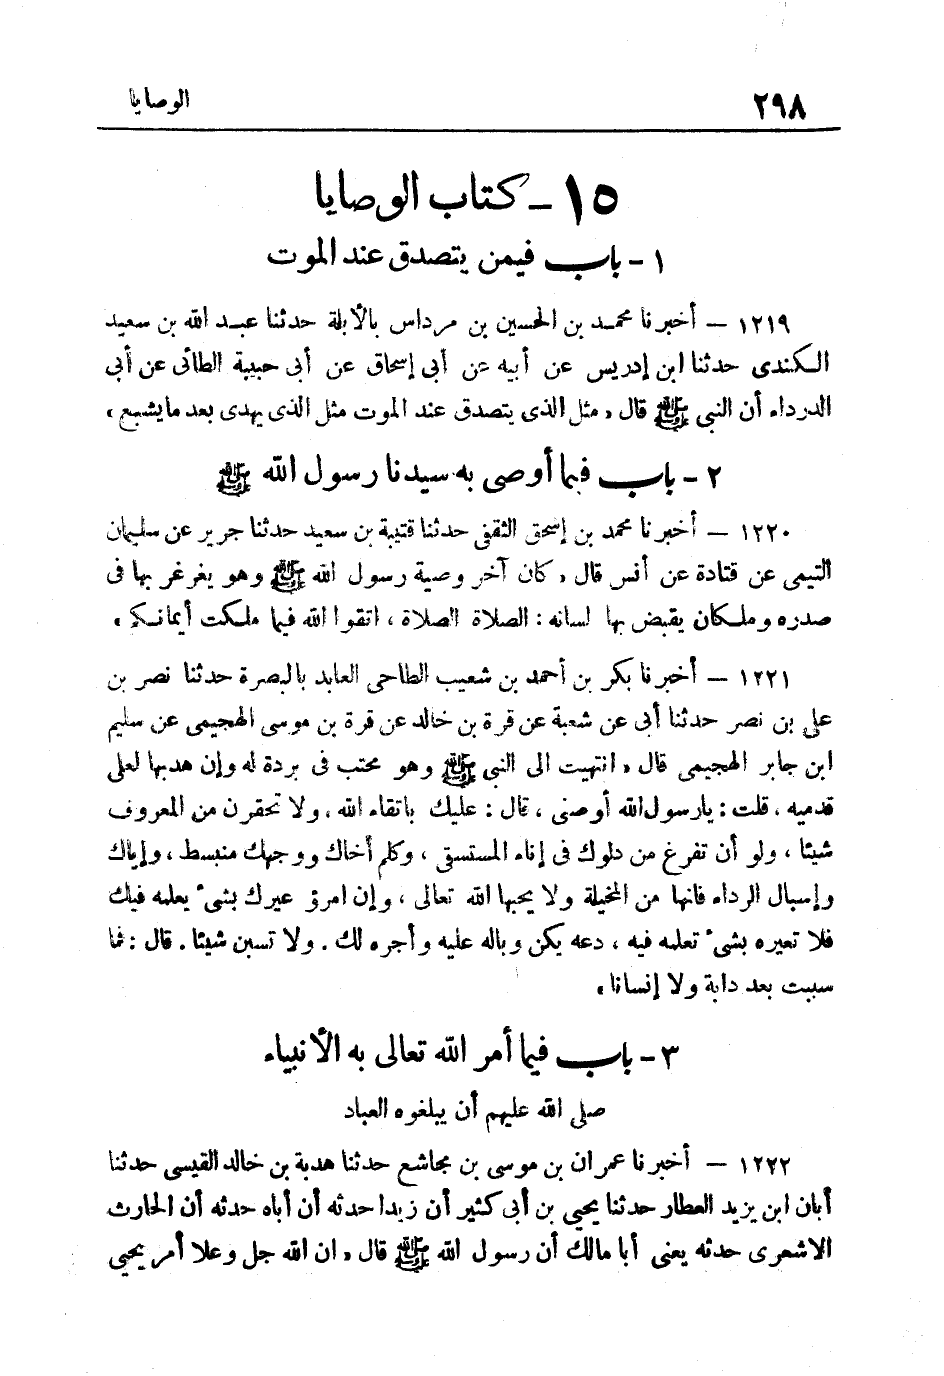 ٢٩٨ الوصايا
١٥ ــ كتاب الوصايا
١ - باب فيمن يتصدق عند الموت
١٢١٩ — أخبرنا محمد بن الحسين بن مرداس بالأبلة حدثنا عبد الله بن سعيد
الكندى حدثنا ابن إدريس عن أبيه عن أبى إسحاق عن أبى حبيبة الطائى عن أبى
الدرداء أن النبى ﷺ قال « مثل الذى يتصدق عند الموت مثل الذى يهدى بعد ما يشبع »
٢ - باب فيما أوصى به سيدنا رسول الله ﷺ
١٢٢٠ — أخبرنا محمد بن إسحق الثقفى حدثنا قتيبة بن سعيد حدثنا جرير عن سليمان
التيمى عن قتادة عن أنس قال « كان آخر وصية رسول الله ﷺ وهو يغرغر بها فى
صدره وما كان يقبض بها لسانه : الصلاة الصلاة ، اتقوا الله فيما ملكت أيمانكم »
١٢٢١ — أخبرنا بكر بن أحمد بن شعيب الطاحى العابد بالبصرة حدثنا نصر بن
على بن نصر حدثنا أبى عن شعبة عن قرة بن خالد عن قرة بن موسى الهجيمى عن سليم
ابن جابر الهجيمى قال « انتهيت الى النبى ﷺ وهو محتب فى بردة له وإن هدبها لعلى
قدميه ، قلت : يارسول الله أوصنى ، قال : عليك باتقاء الله ، ولا تحقرن من المعروف
شيئا ، ولو أن تفرغ من دلوك فى إناء المستسقى ، وكلم أخاك ووجهك منبسط ، وإياك
وإسبال الرداء فانها من المخيلة ولا يحبها الله تعالى ، وإن امرؤ عيرك بشىء يعلمه فيك
فلا تعيره بشىء تعلمه فيه ، دعه يكن وباله عليه وأجره لك . ولا تسبن شيئا . قال : فما
سببت بعد دابة ولا إنسانا »
٣ - باب فيما أمر الله تعالى به الأنبياء
صلى الله عليهم أن يبلغوه العباد
١٢٢٢ — أخبرنا عمران بن موسى بن مجاشع حدثنا هدبة بن خالد القيسى حدثنا
أبان ابن يزيد العطار حدثنا يحيى بن أبى كثير أن زيدا حدثه أن أباه حدثه أن الحارث
الاشعرى حدثه يعنى أبا مالك أن رسول الله ﷺ قال « ان الله جل وعلا أمر يحيى